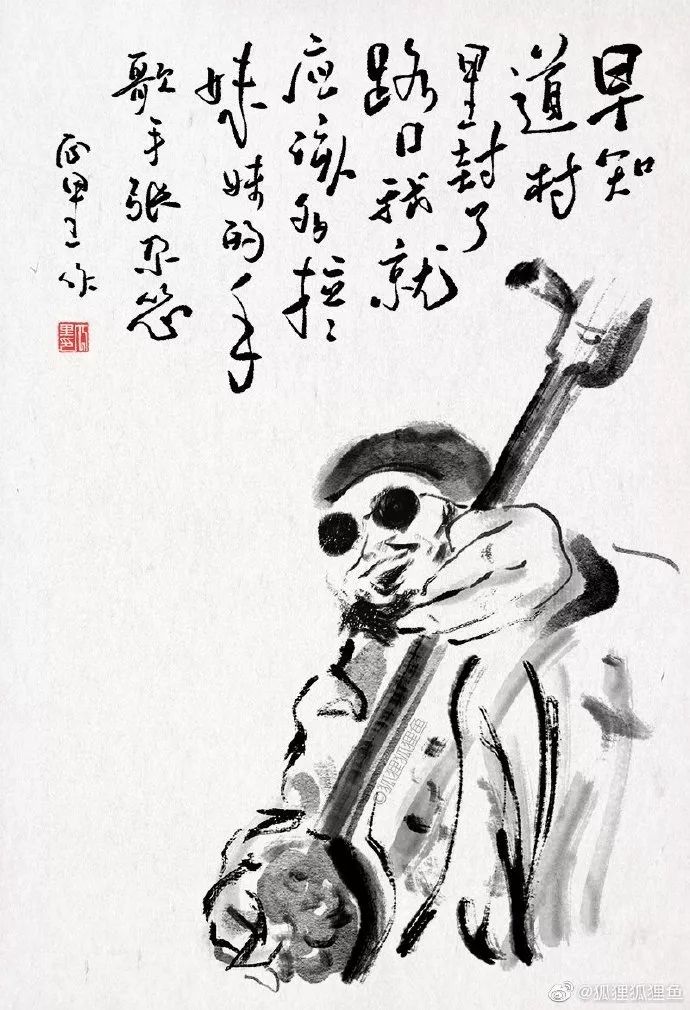 早知
道村
里封了
路口我就
应该多拉〻
妹妹的手
歌手张尕怂
作
©狐狸狐狸鱼
@狐狸狐狸鱼